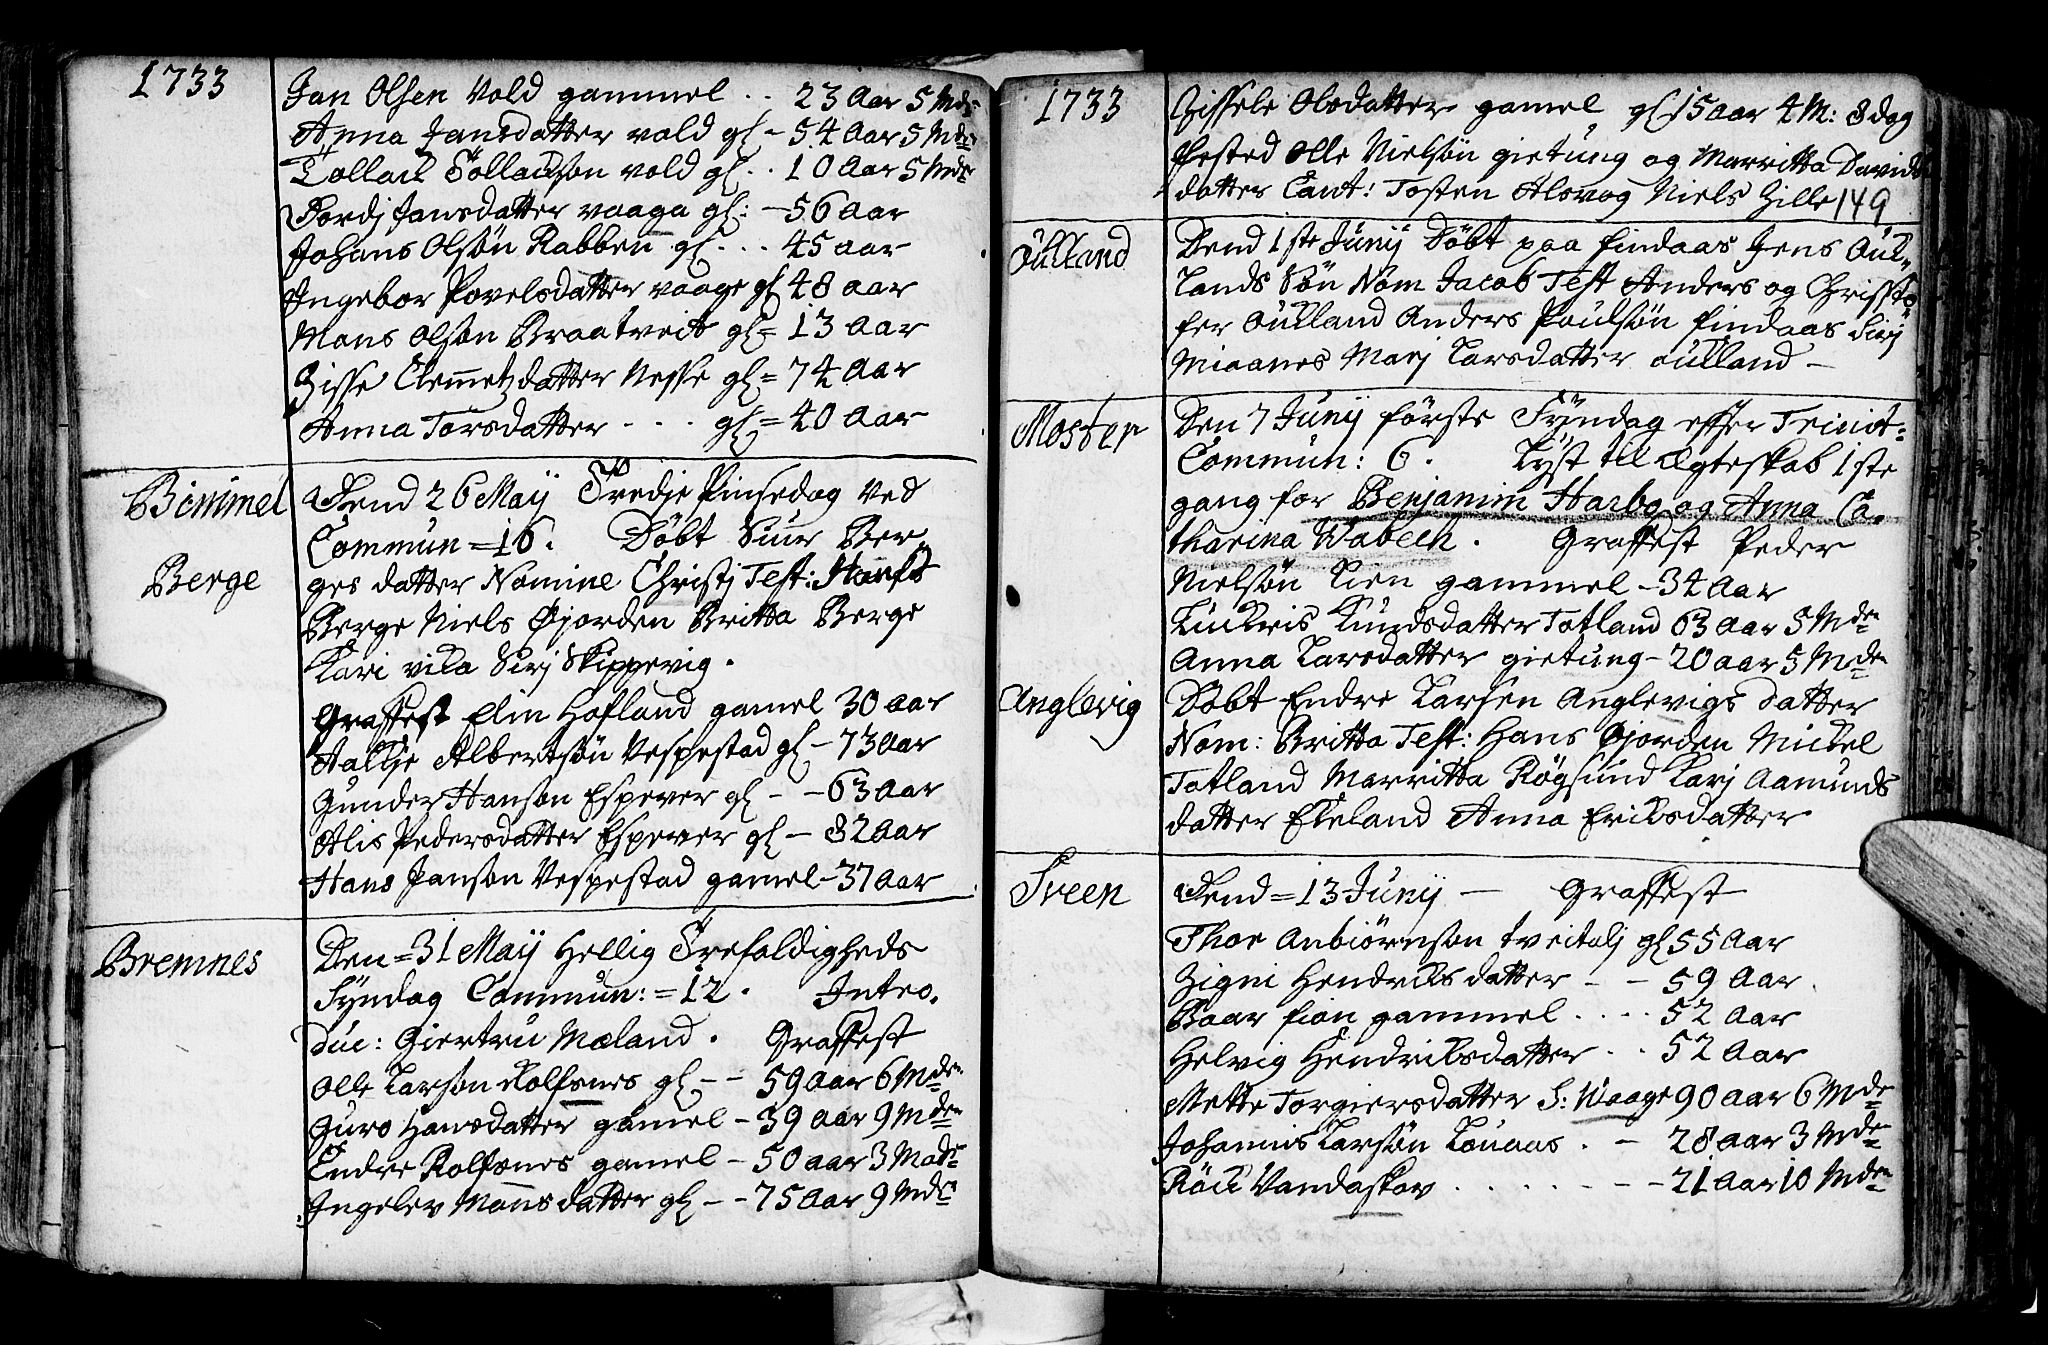 1733
Jan Olsen Vold gammel . . 23 Aar 5 Mdr
Anna Jansdatter vold gl - 54 Aar 5 Mdr
Tollack Tollackson vold gl . . 10 Aar 5 Mdr
Tordj Jansdatter vaaga gl: - 56 Aar
Johans Olsøn Rabben gl . . . 45 aar
Ingebor Povelsdatter vaage gl 48 aar
Mons Olson Braatveit gl = 13 Aar
Zisse Clemetzdatter Nesse gl = 74 Aar
Anna Torsdatter - - - gl = 40 Aar
Bømmel
Dend 26 Maij Tredje Pinsedag Ved
Commun = 16. Døbt Siur Ber
Berge
ges datter Nomine Christj Test:
Berge Niels Øjorden Britta Berge
Kari vika Sirj Skippevig.
Graffest Elin Hofland gamel 30 aar
Hallje Albertsøn Vespestad gl - 73 Aar
Gunder Hanson Espever gl - - 63 Aar
Alis Pedersdatter Espever gl - 82 Aar
Hans Janson Vespestad gamel - 37 Aar
Bremnes
Den = 31 Maij Hellig Trefoldigheds
Syndag Commun: = 12. Intro.
duc: Giertru Mæland. Graffest
Olle Larson Rolfsnes gl - - 59 Aar 6 Mdr
Guro Hansdatter gamel - 39 aar 9 Mdr
Endre Rolfsnes gamel - 50 aar 3 Mdr
Ingelev Monsdatter gl - - 75 Aar 9 Mdr
1733
Zissele Olsdatter gamel gl 15 aar 4 M: 8 dag
fested Olle Nielsøn gietung og Marritta Davids
datter Caut: Tosten Alsvog Niels Gille 149
Øulland
Dend 1ste Junij Døbt paa findaas Jens Øul-
lands Søn Nom Jacob Test Anders og Christo
fer Øulland Anders Poulsøn findaas Sirj
Miaanes Marj Larsdatter øulland -
Moster
Den 7 Junij første Syndag effter Trinit=
Commun: 6. Lyst till Ægteskab 1ste
gang for Benjamin Harbo og Anna Ca.
tharina Wabech. Graffest Peder
Nielsøn Lien gammel - 34 Aar
Luckris Knudsdatter Totland 63 aar 5 Mdr
Anna Larsdatter gietung - 20 aar 5 Mdr
Anglevig
Døbt Endre Larsen Anglevigs datter
Nom: Britta Test: Hans Øjorden Mickel
Totland Marritta Røgsund Karj Aamunds
datter Ekeland Anna Eriksdatter
Sveen
Dend = 13 Junij - Graffest
Thor Anbiørnson tveitalj gl 55 Aar
Zigni Hendriksdatter - - 59 Aar
Baar fion gammel . . . . 52 Aar
Helvig Hendriksdatter . . 52 Aar
Mette Torgiersdatter S: Waage 90 aar 6 Mdr
Johannis Larsøn Louaas . - 28 aar 3 Mdr
Vandaskov . . . . . . . - - 21 Aar 10 Mdr